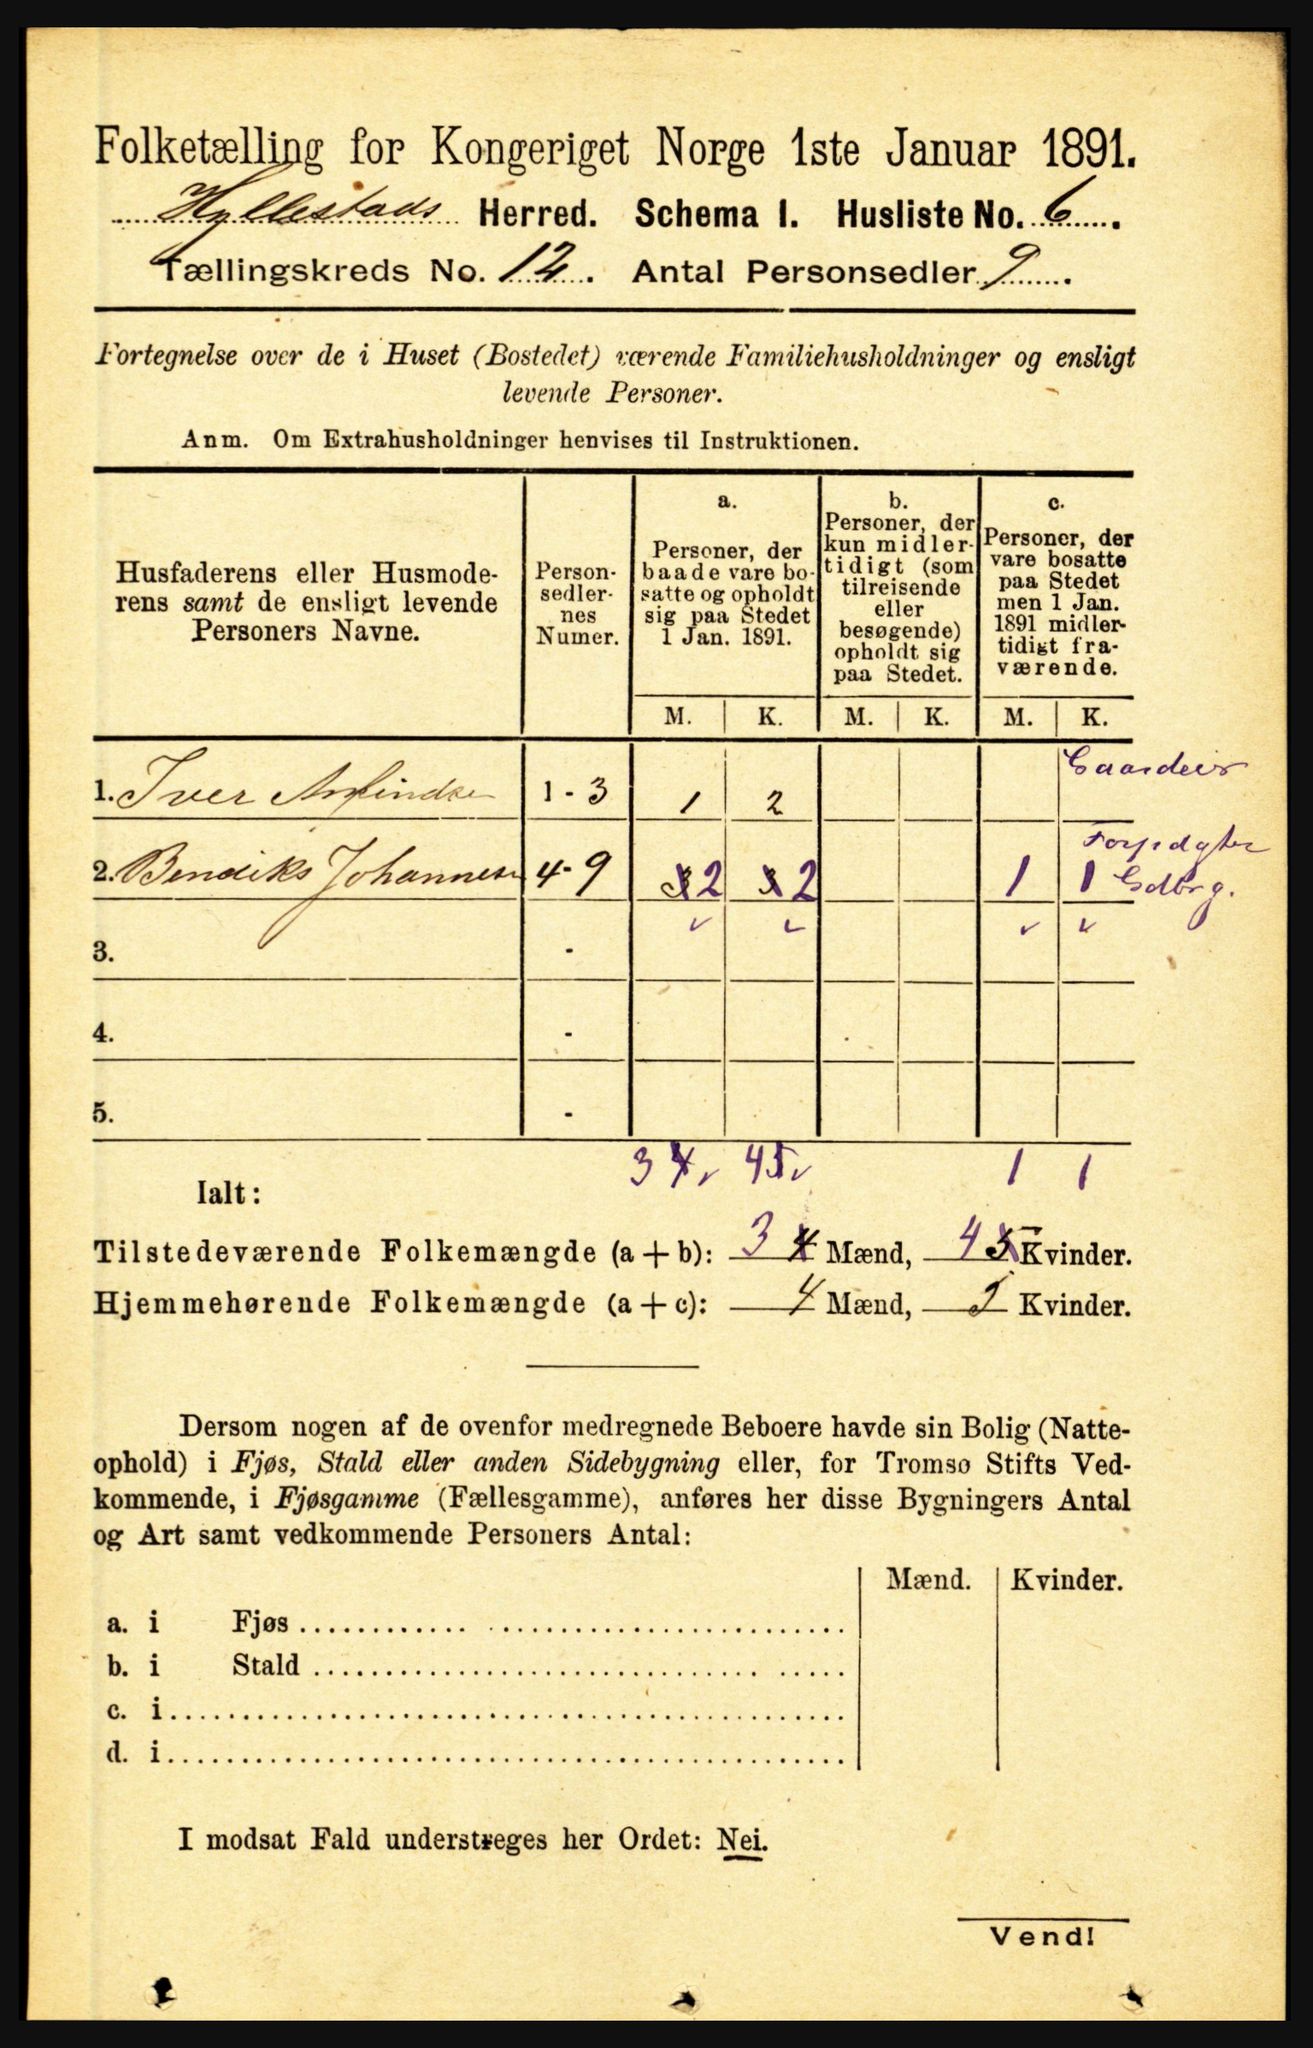 Folketælling for Kongeriget Norge 1ste Januar 1891.
Hyllestads Herred. Schema I. Husliste No. 6.
Tællingskreds No. 12. Antal Personsedler 9.
Fortegnelse over de i Huset (Bostedet) værende Familiehusholdninger og ensligt
levende Personer.
Anm. Om Extrahusholdninger henvises til Instruktionen.
Husfaderens eller Husmode-
rens samt de ensligt levende
Personers Navne.
Person-
sedler-
nes
Numer.
a.
Personer, der
baade vare bo-
satte og opholdt
sig paa Stedet
1 Jan. 1891.
b.
Personer, der
kun midler-
tidigt (som
tilreisende
eller
besøgende)
opholdt sig
paa Stedet.
c.
Personer, der
vare bosatte
paa Stedet
men 1 Jan.
1891 midler-
tidigt fra-
værende.
M. K. M. K. M. K.
Gaardeier
1. Iver 1 - 3 1 2
2. Bendiks Johannesen 4 - 9 3 2 3 2 1 1
3. -
4. -
5. -
Ialt: 3 4 4 5 1 1
Tilstedeværende Folkemængde (a + b): 3 4 Mænd, 4 5 Kvinder.
Hjemmehørende Folkemængde (a + c): 4 Mænd, 5 Kvinder.
Dersom nogen af de ovenfor medregnede Beboere havde sin Bolig (Natte-
ophold) i Fjøs, Stald eller anden Sidebygning eller, for Tromsø Stifts Ved-
kommende, i Fjøsgamme (Fællesgamme), anføres her disse Bygningers Antal
og Art samt vedkommende Personers Antal:
Mænd. Kvinder.
a. i Fjøs
b. i Stald
c. i
d. i
I modsat Fald understreges her Ordet: Nei.
Vend!